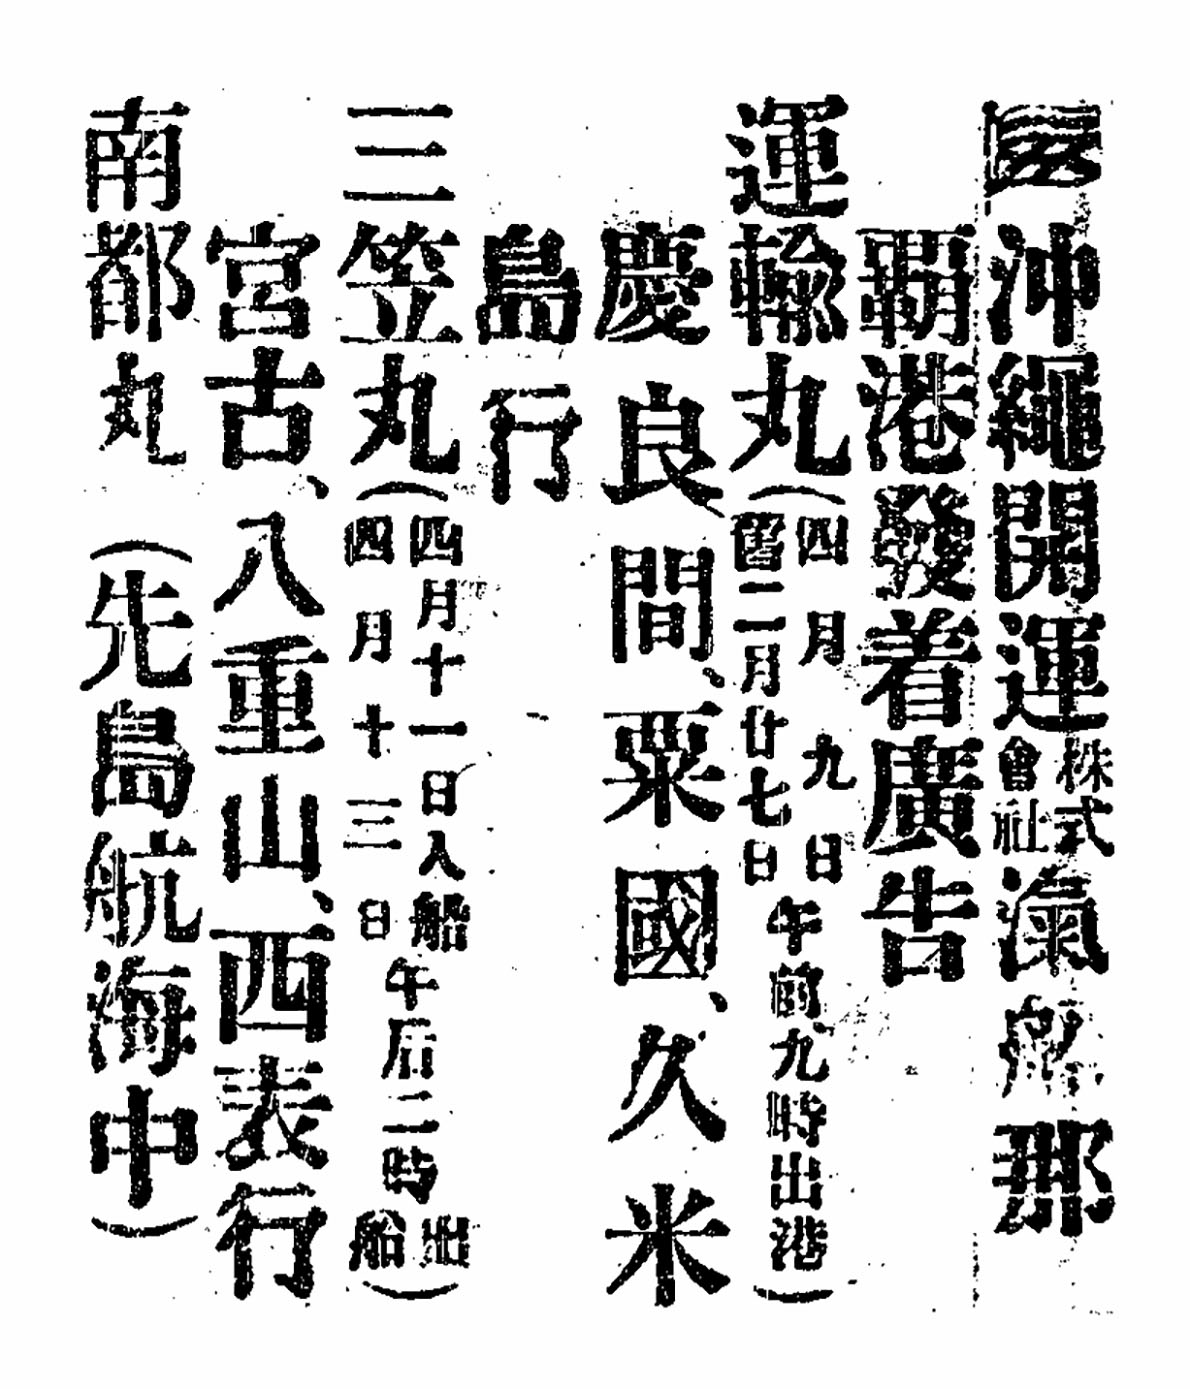 沖繩開運株式會社滊船那
覇港發着廣告
運輸丸(四月九日舊二月廿七日午前九時出港)
慶良間、粟國、久米
島行
三笠丸(四月十一日入船四月十三日午后二時出船)
宮古、八重山、西表行
南都丸(先島航海中)